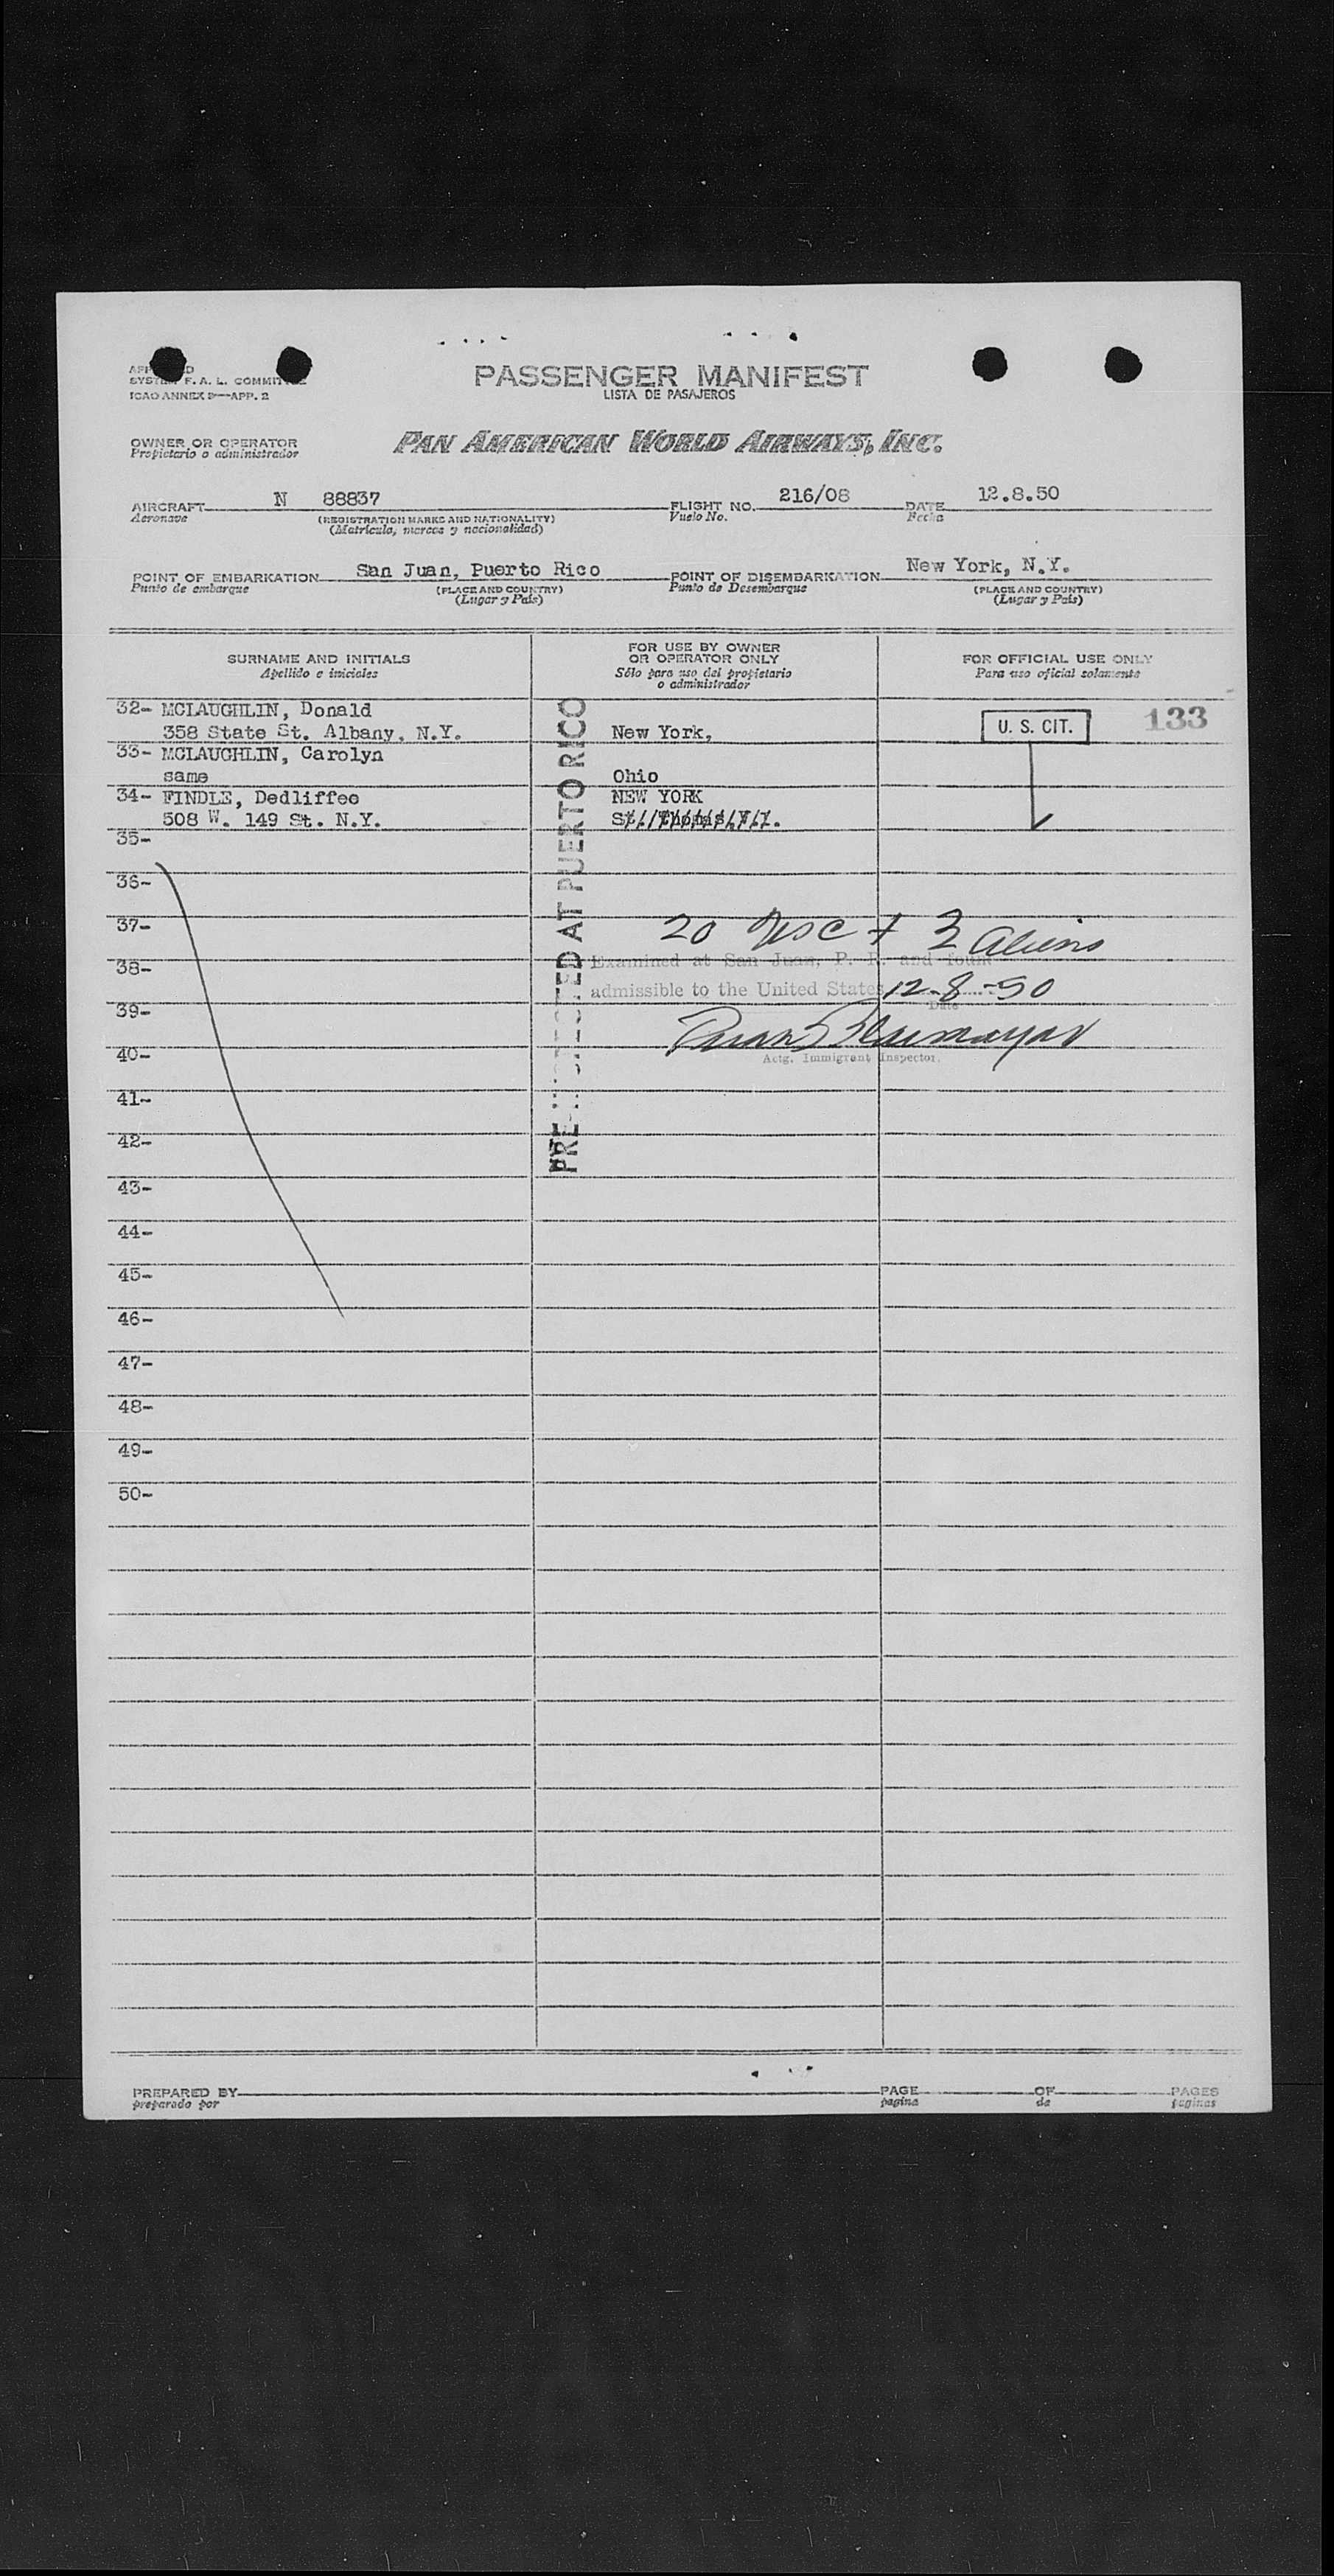 PASSENGER MANIFEST
LISTA DE PASAJEROS
SYSTEM F. A. L. COMMITTEE
ICAO ANNEX 9—APP. 2
OWNER OR OPERATOR
Propietario o administrador
PAN AMERICAN WORLD AIRWAYS, INC.
AIRCRAFT N 88837 FLIGHT NO. 216/08 DATE 12.8.50
Aeronave (REGISTRATION MARKS AND NATIONALITY) Vuelo No. Fecha
(Matrícula, marcas y nacionalidad)
POINT OF EMBARKATION San Juan, Puerto Rico POINT OF DISEMBARKATION New York, N.Y.
Punto de embarque (PLACE AND COUNTRY) Punto de Desembarque (PLACE AND COUNTRY)
(Lugar y País) (Lugar y País)
SURNAME AND INITIALS
Apellido e iniciales
FOR USE BY OWNER
OR OPERATOR ONLY
Sólo para uso del propietario
o administrador
FOR OFFICIAL USE ONLY
Para uso oficial solamente
32- MCLAUGHLIN, Donald
358 State St. Albany, N.Y. New York, U. S. CIT. 133
33- MCLAUGHLIN, Carolyn
same Ohio
34- FINDLE, Dedliffee NEW YORK
508 W. 149 St. N.Y. St. Thomas, V.I.
35-
36-
37- 20 USC + 3 aliens
38- Examined at San Juan, P. R. and found
admissible to the United States 12-8-50
39- Date
40-
Actg. Immigrant Inspector.
41-
42-
43-
44-
45-
46-
47-
48-
49-
50-
PRE-INSPECTED AT PUERTO RICO
PREPARED BY PAGE OF PAGES
preparado por pagina de paginas